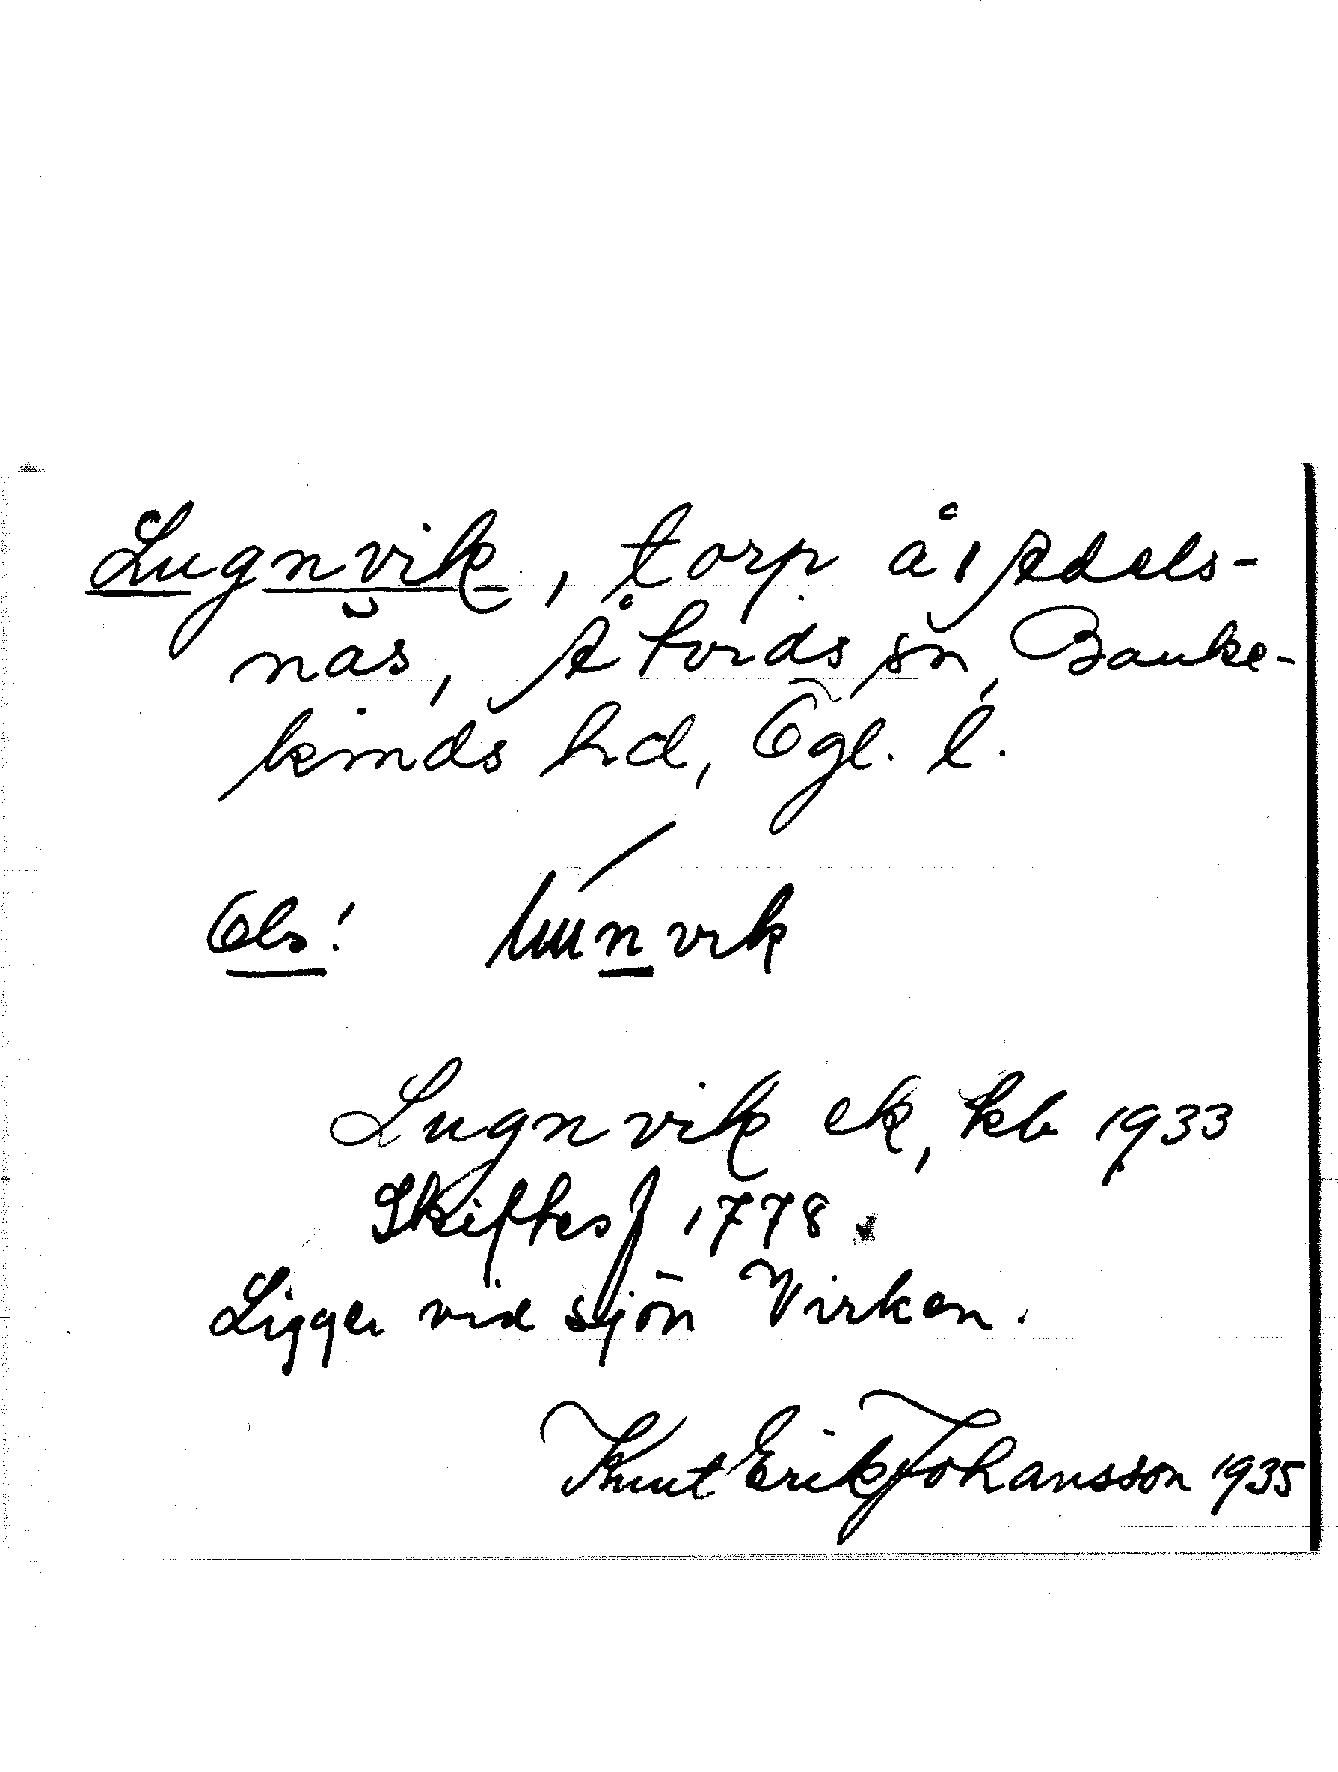 Lugnvik, torp å, Adels-
näs, Åtvids sn, Banke-
kinds hd, Ögl. l.
Obs!
Lugnvik ek, kb 1933
Skiftes 1778.
Ligger vid sjön Virken.
Knut Erik Johansson 1935